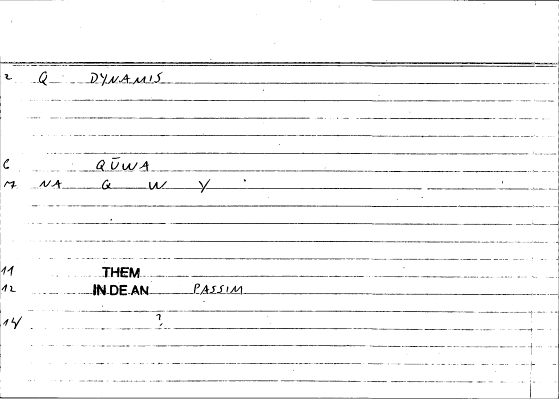 2 Q DYNAMIS
6 QŪWA
7 NA Q W Y
11 THEM
12 IN.DE.AN PASSIM
14 ?